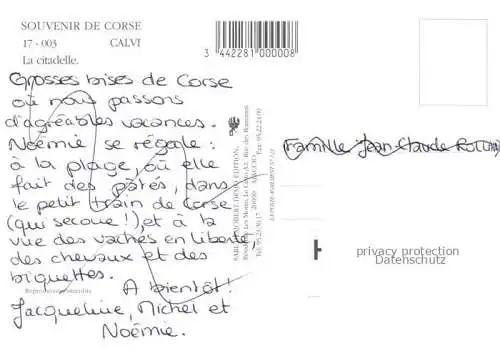 SOUVENIR DE CORSE
17 - 003 CALVI
La citadelle.
3 442281 000008
Grosses bises de Corse
où nous passons
d'agréables vacances.
Noémie se régale :
à la plage, où elle
fait des pâtés, dans
le petit train de Corse
(qui secoue !), et à la
vue des vaches en liberté,
des chevaux et des
biquettes.
A bientôt !
Jacqueline, Michel et
Noémie.
Famille Jean-Claude
privacy protection
Datenschutz